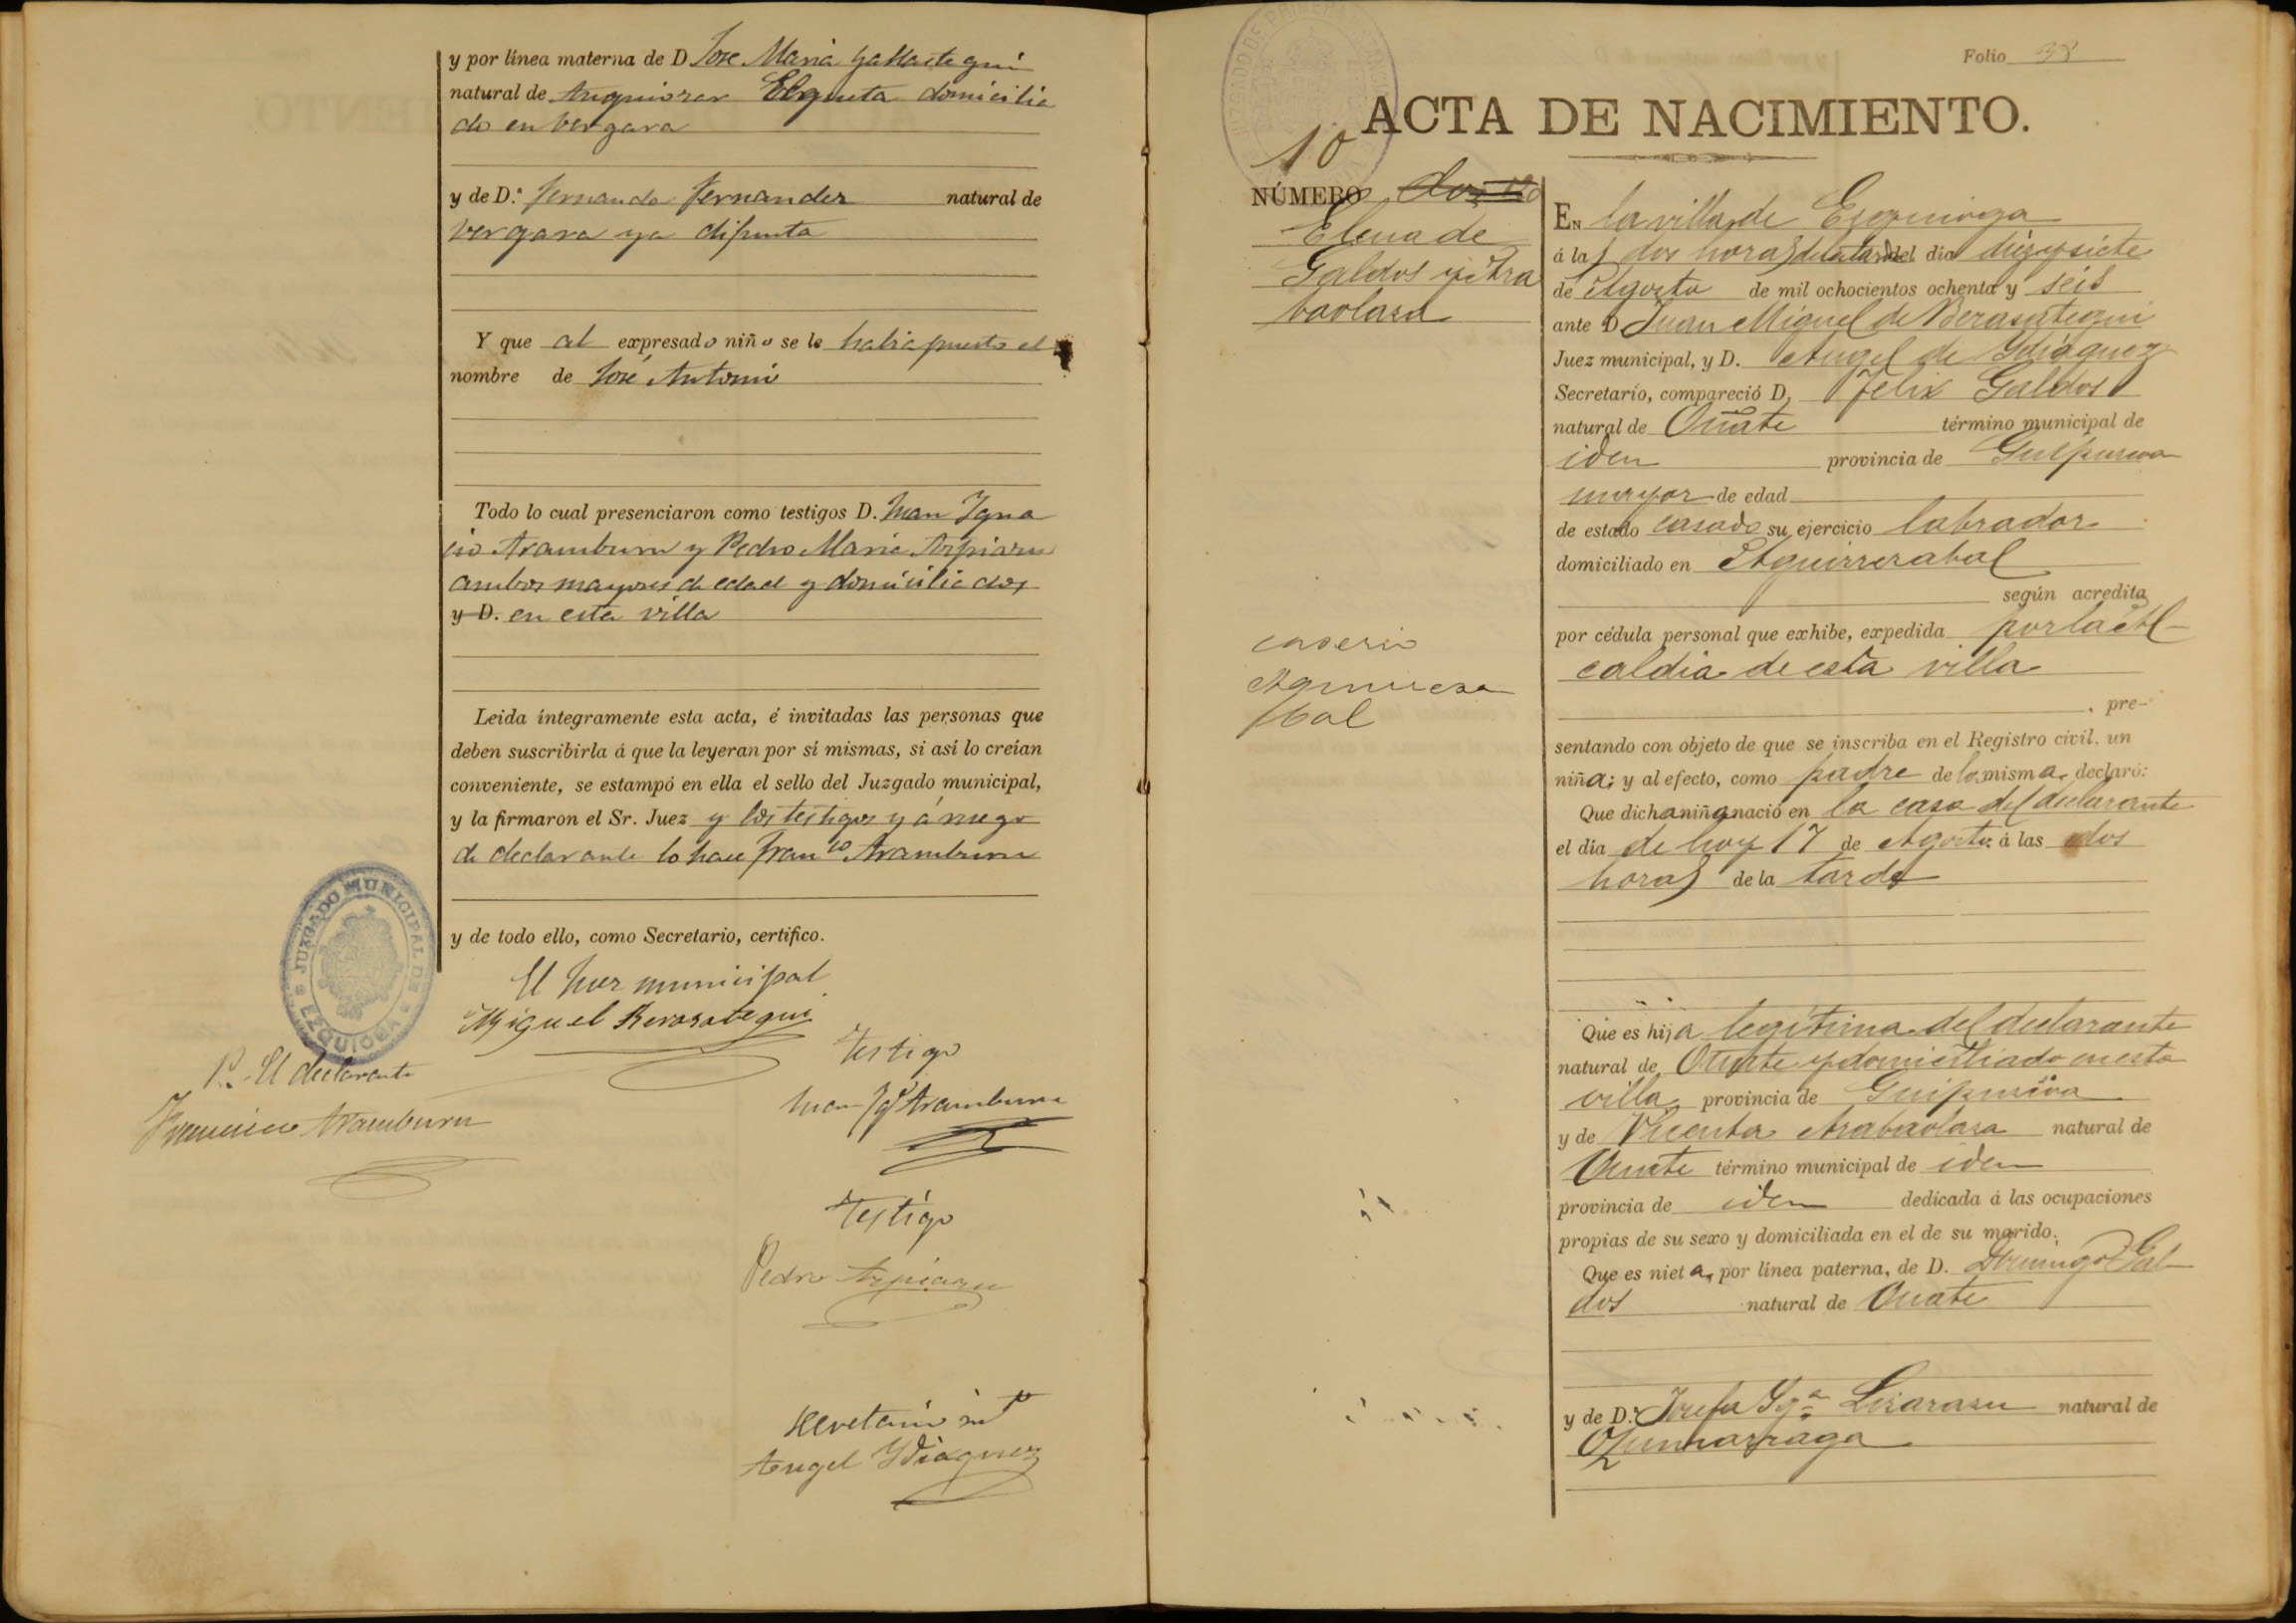 y por línea materna de D Jose Maria Gallastegui
natural de Anguiozar Elgueta domicilia
do en Vergara
y de D.ª Fernanda Fernandez natural de
Vergara ya difunta
Y que al expresado niño se le habia puesto el
nombre de José Antonio
Todo lo cual presenciaron como testigos D. Juan Igna
cio Aramburu y Pedro Maria Azpiazu
ambos mayores de edad y domiciliados
y D. en esta villa
Leida íntegramente esta acta, é invitadas las personas que
deben suscribirla á que la leyeran por sí mismas, si así lo creían
conveniente, se estampó en ella el sello del Juzgado municipal,
y la firmaron el Sr. Juez y los testigos y á ruego
de declarante lo hace Franco Aramburu
y de todo ello, como Secretario, certifico.
JUZGADO MUNICIPAL DE EZQUIOGA
El Juez municipal
Miguel Berasategui
P. El declarante
Francisco Aramburu
Testigo
Juan Igº Aramburu
Testigo
Pedro Azpiazu
Secretario intº
Angel Ydiaquez
Folio 38
ACTA DE NACIMIENTO.
10
NÚMERO dos
Elena de
Galdos y Ara
baolasa
caserio
Aguirreza
bal
En la villa de Ezquioga
á las dos horas de la tarde del dia diez y siete
de Agosto de mil ochocientos ochenta y seis
ante D Juan Miguel de Berasategui
Juez municipal, y D. Angel de Ydiaquez
Secretario, compareció D. Felix Galdos
natural de Oñate término municipal de
iden provincia de Guipuzcoa
mayor de edad
de estado casado su ejercicio labrador
domiciliado en Aguirrezabal
según acredita
por cédula personal que exhibe, expedida por la Al-
caldia de esta villa
, pre-
sentando con objeto de que se inscriba en el Registro civil, un
niña; y al efecto, como padre de la misma, declaró:
Que dicha niña nació en la casa del declarante
el día de hoy 17 de Agosto á las dos
horas de la tarde
Que es hija legitima del declarante
natural de Oñate y domiciliado en esta
villa provincia de Guipuzcoa
y de Vicenta Arabaolasa natural de
Oñate término municipal de iden
provincia de iden dedicada á las ocupaciones
propias de su sexo y domiciliada en el de su marido.
Que es nieta, por línea paterna, de D. Domingo Gal-
dos natural de Oñate
y de D.ª Josefa Ygª Lizarasu natural de
Zumarraga